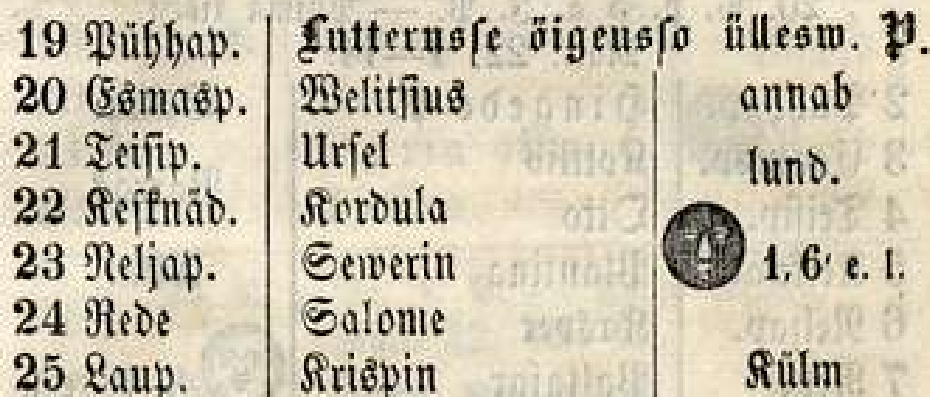 19 Pühhap. Lutterusse öigeusso üllesw. P.
20 Esmasp. Welitsius annab
21 Teisip. Ursel lund.
22 Kesknäd. Kordula
23 Neljap. Sewerin 1,6' e. l.
24 Rede Salome
25 Laup. Krispin Külm